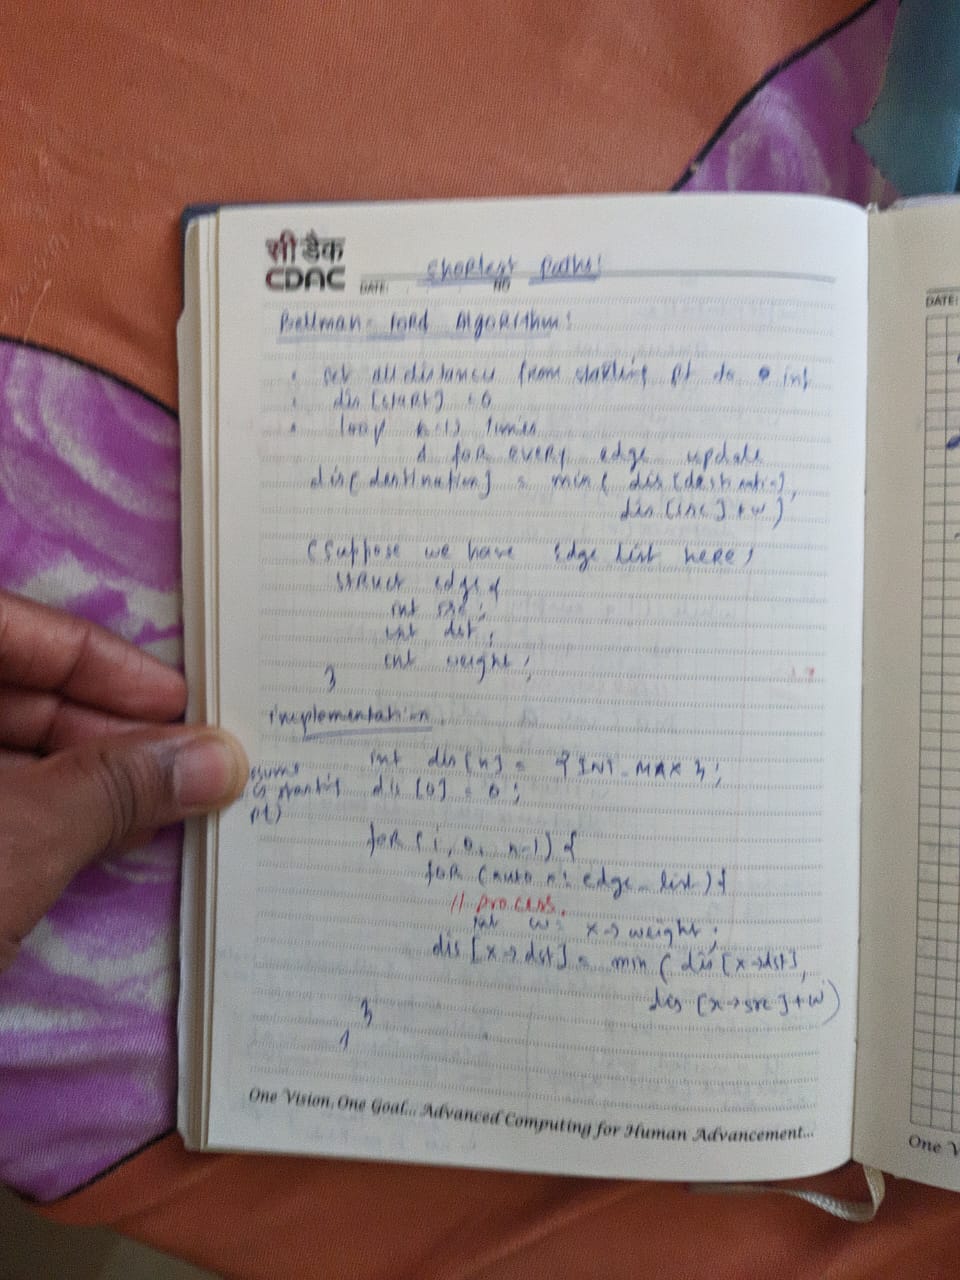 सी डैक
CDAC
DATE:
NO
Shortest Paths:
Bellman-Ford Algorithm:
• set all distances from starting pt to inf
• dis [start] = 0
• loop n-1 times
& for every edge update
dis[destination] = min(dis[destination],
dis [src] + w)
(Suppose we have Edge list here)
struct edge {
int src;
int dst;
int weight;
}
implementation
int dis[n] = {INT_MAX};
is starting dis [0] = 0;
pt)
for (i, 0, n-1) {
for (auto x: edge_list) {
// process.
int w = x->weight;
dis [x->dst] = min ( dis [x->dst],
dis [x->src] + w)
}
}
One Vision, One Goal... Advanced Computing for Human Advancement...
DATE:
One V